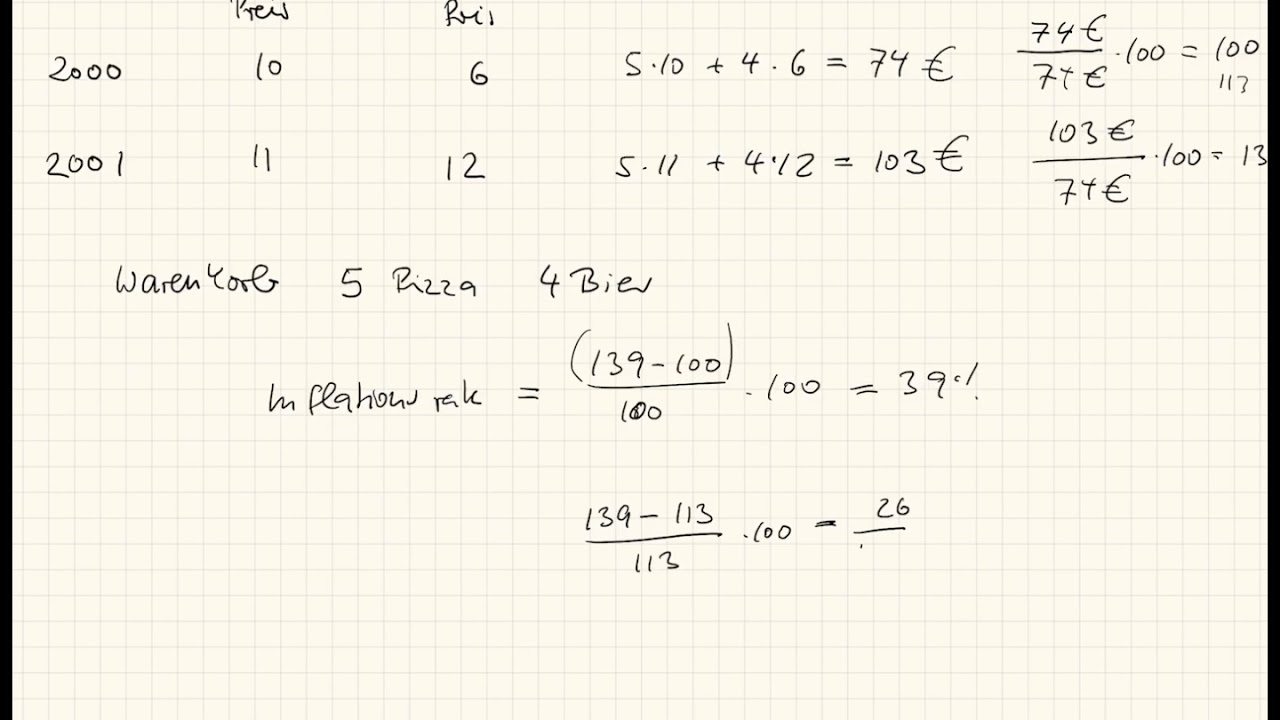 Preis Preis
2000 10 6 5·10 + 4·6 = 74 € 74 € / 74 € ·100 = 100
113
2001 11 12 5·11 + 4·12 = 103 € 103 € / 74 € ·100 = 13
Warenkorb 5 Pizza 4 Bier
Inflationsrate = (139 - 100) / 100 · 100 = 39 %
139 - 113 / 113 ·100 = 26